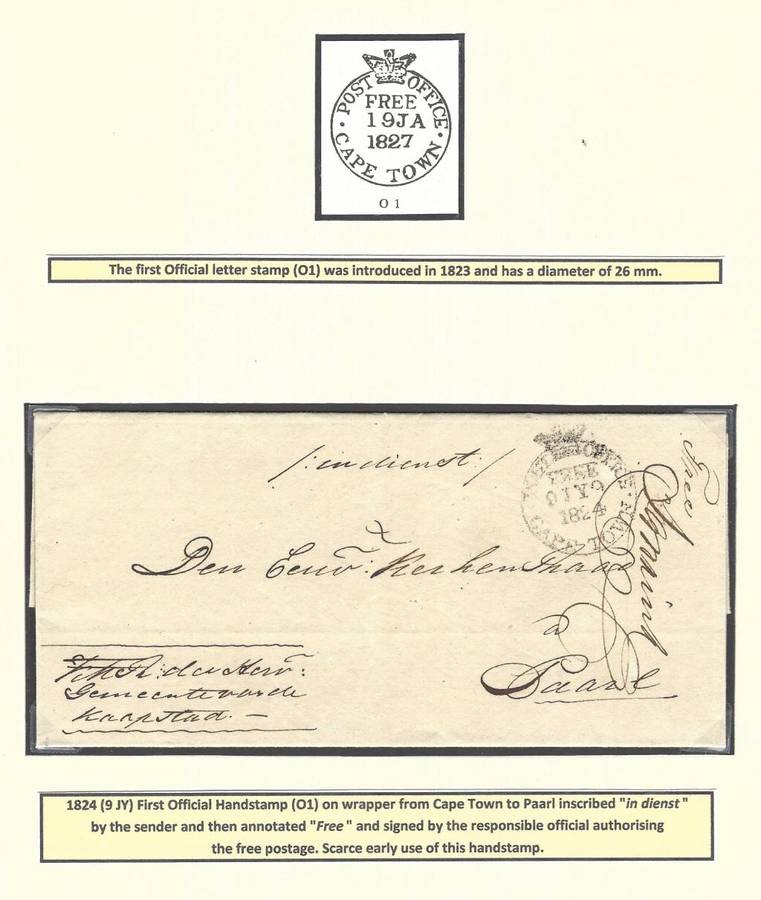 POST OFFICE
FREE
19JA
1827
CAPE TOWN
O 1
The first Official letter stamp (O1) was introduced in 1823 and has a diameter of 26 mm.
/: in dienst :/
OFFICE
FREE
1824
CAPE TOWN
Free
Den Eerw: Kerken Raad
a
Paarl
der Herv:
Gemeente
Kaapstad. —
1824 (9 JY) First Official Handstamp (O1) on wrapper from Cape Town to Paarl inscribed "in dienst "
by the sender and then annotated "Free " and signed by the responsible official authorising
the free postage. Scarce early use of this handstamp.